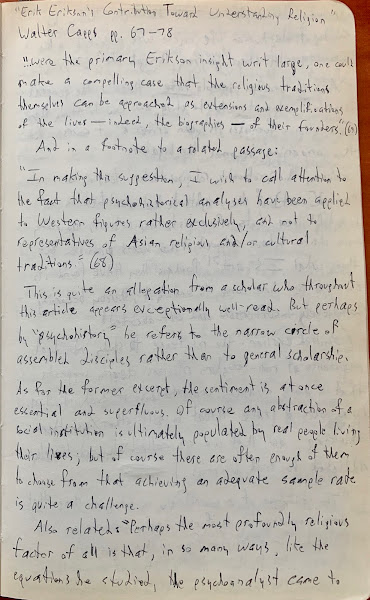 "Erik Erikson's Contribution Toward Understanding Religion"
Walter Capps pp. 67-78
"...were the primary Erikson insight writ large, one could
make a compelling case that the religious traditions
themselves can be approached as extensions and exemplifications
of the lives — indeed, the biographies — of their founders."
And in a footnote to a related passage:
"In making this suggestion, I wish to call attention to
the fact that psychohistorical analyses have been applied
to Western figures rather exclusively, and not to
representatives of Asian religious and/or cultural
traditions" (68)
This is quite an allegation from a scholar who throughout
this article appears exceptionally well-read. But perhaps
by "psychohistory" he refers to the narrow circle of
assembled disciples rather than to general scholarship.
As for the former excerpt, the sentiment is at once
essential and superfluous. Of course any abstraction of a
social institution is ultimately populated by real people living
their lives; but of course there are often enough of them
to choose from that achieving an adequate sample rate
is quite a challenge.
Also related: "Perhaps the most profoundly religious
factor of all is that, in so many ways, like the
equations he studied, the psychoanalyst came to